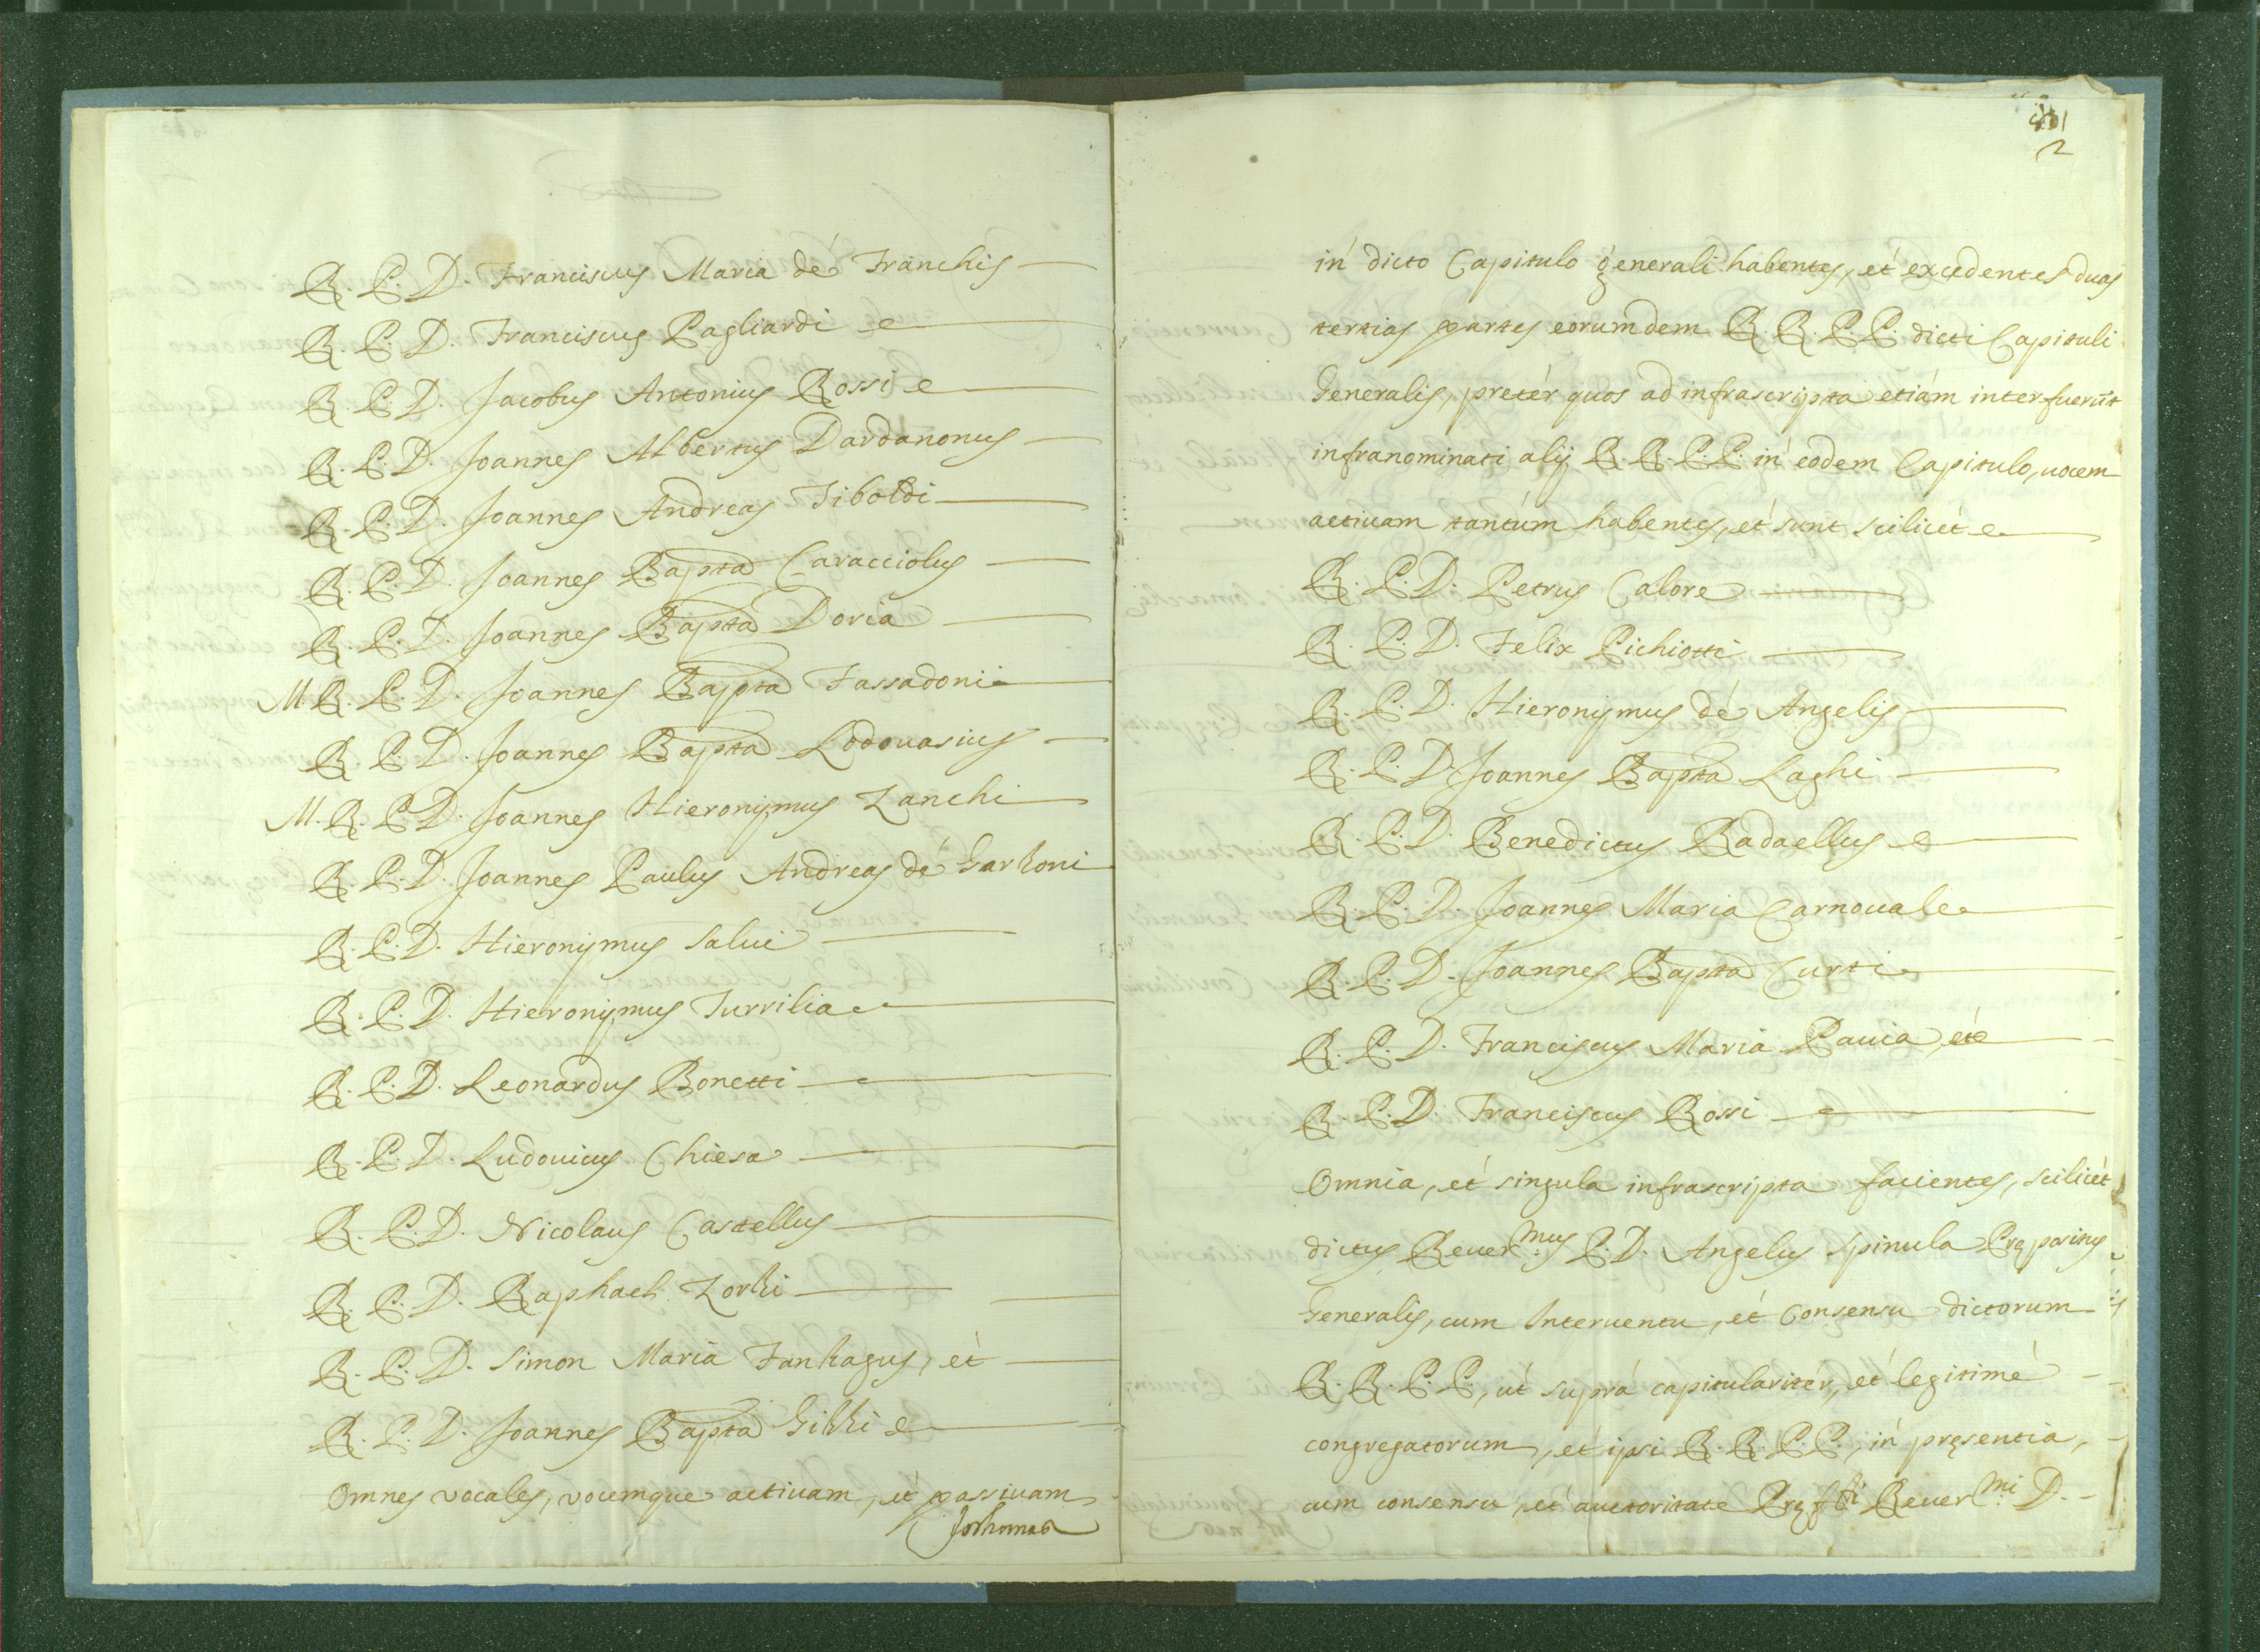 R. P. D. Franciscus Maria dé Franchis
R. P. D. Franciscus Pagliardi
R. P. D. Jacobus Antonius Rossi
R. P. D. Joannes Albertus Dardanonus
R. P. D. Joannes Andreas Tiboldi
R. P. D. Joannes Bapta Caracciolus
R. P. D. Joannes Bapta Doria
M. R. P. D. Joannes Bapta Fassadoni
R. P. D. Joannes Bapta Lodouasius
M. R. P. D. Joannes Hieronymus Zanchi
R. P. D. Joannes Paulus Andreas dé Garzoni
R. P. D. Hieronymus Salui
R. P. D. Hieronymus Turrilia
R. P. D. Leonardus Bonetti
R. P. D. Ludouicus Chiesa
R. P. D. Nicolaus Castellus
R. P. D. Raphael Zorzi
R. P. D. Simon Maria Fanzagus, et
R. P. D. Joannes Bapta Gizzi
Omnes vocales, vocemque actiuam, et passiuam
2
in dicto Capitulo generali habentes, et excedentes duas
tertias partes eorumdem R. R. P. P. dicti Capituli
Generalis, pretér quos ad infrascripta etiám interfuerūt
infranominati alij R. R. P. P. in eodem Capitulo, uocem
actiuam tantúm habentes, et sunt scilicét
R. P. D. Petrus Calore
R. P. D. Felix Pichiotti
R. P. D. Hieronymus dé Angelis
R. P. D. Joannes Bapta Laghi
R. P. D. Benedictus Radaellus
R. P. D. Joannes Maria Carnouale
R. P. D. Joannes Bapta Curti
R. P. D. Franciscus Maria Pauia, et
R. P. D. Franciscus Rossi
Omnia, et singula infrascripta facientes, scilicét
dictus Reuer.mus P. D. Angelus Spinula Prępositus
Generalis, cum Interuentu, et Consensu dictorum
R. R. P. P., ut suprá capitularitér, et legitimé
congregatorum, et ipsi R. R. P. P., in pręsentia,
cum consensu, et auctoritate Pręfti Reuer.mi D.